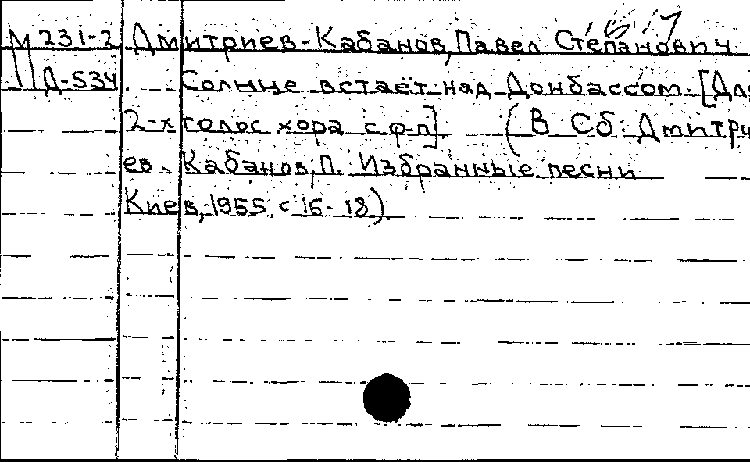 М 231-2 Дмитриев-Кабанов, Павел Степанович
Д-534. Солнце встаёт над Донбассом. [Для
2-х голос хора с ф-п]. (В Сб: Дмитри
ев-Кабанов, П. Избранные песни
Киев, 1955, с 16-18)